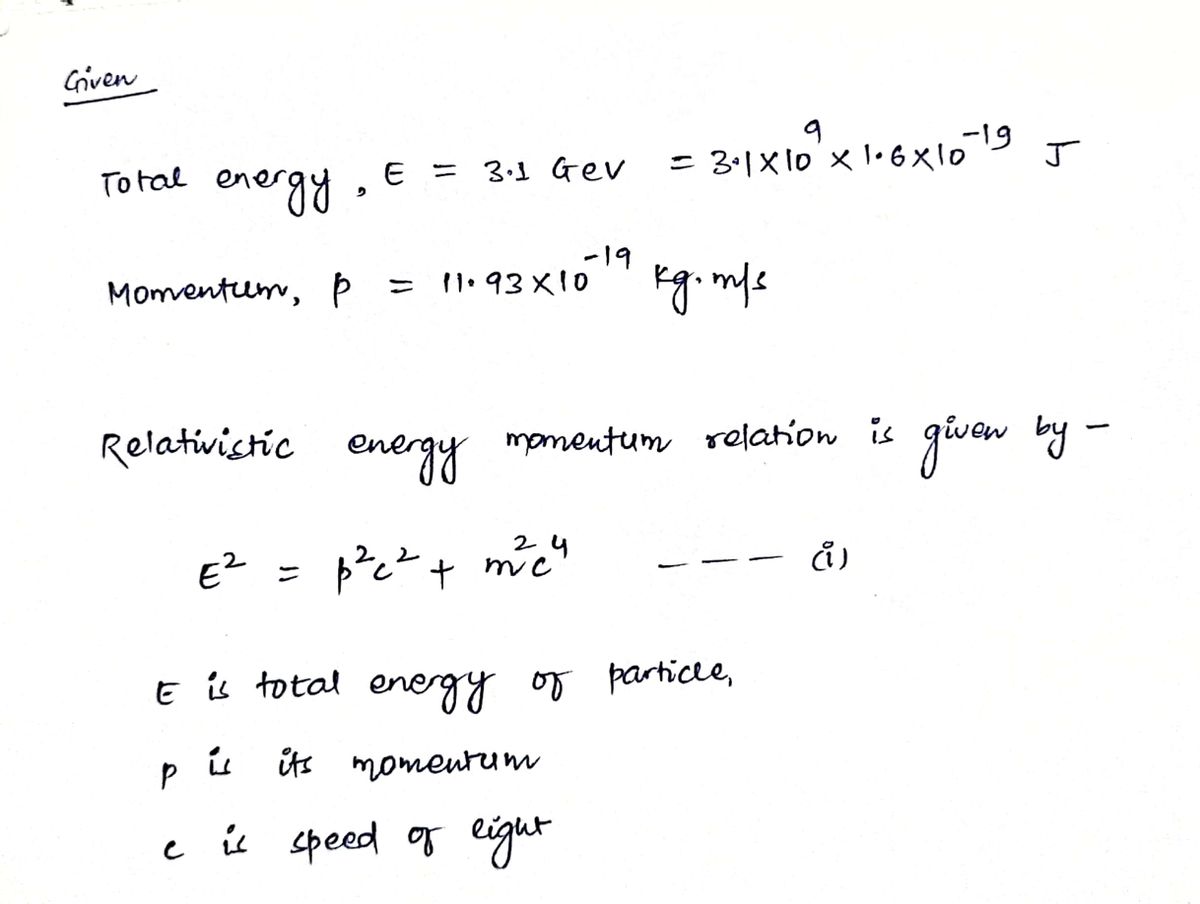 Given
Total energy, E = 3.1 Gev = 3.1×10⁹ × 1.6×10⁻¹⁹ J
Momentum, p = 11.93×10⁻¹⁹ kg.m/s
Relativistic energy momentum relation is given by -
E² = p²c² + m²c⁴ --- (i)
E is total energy of particle,
p is its momentum
c is speed of light